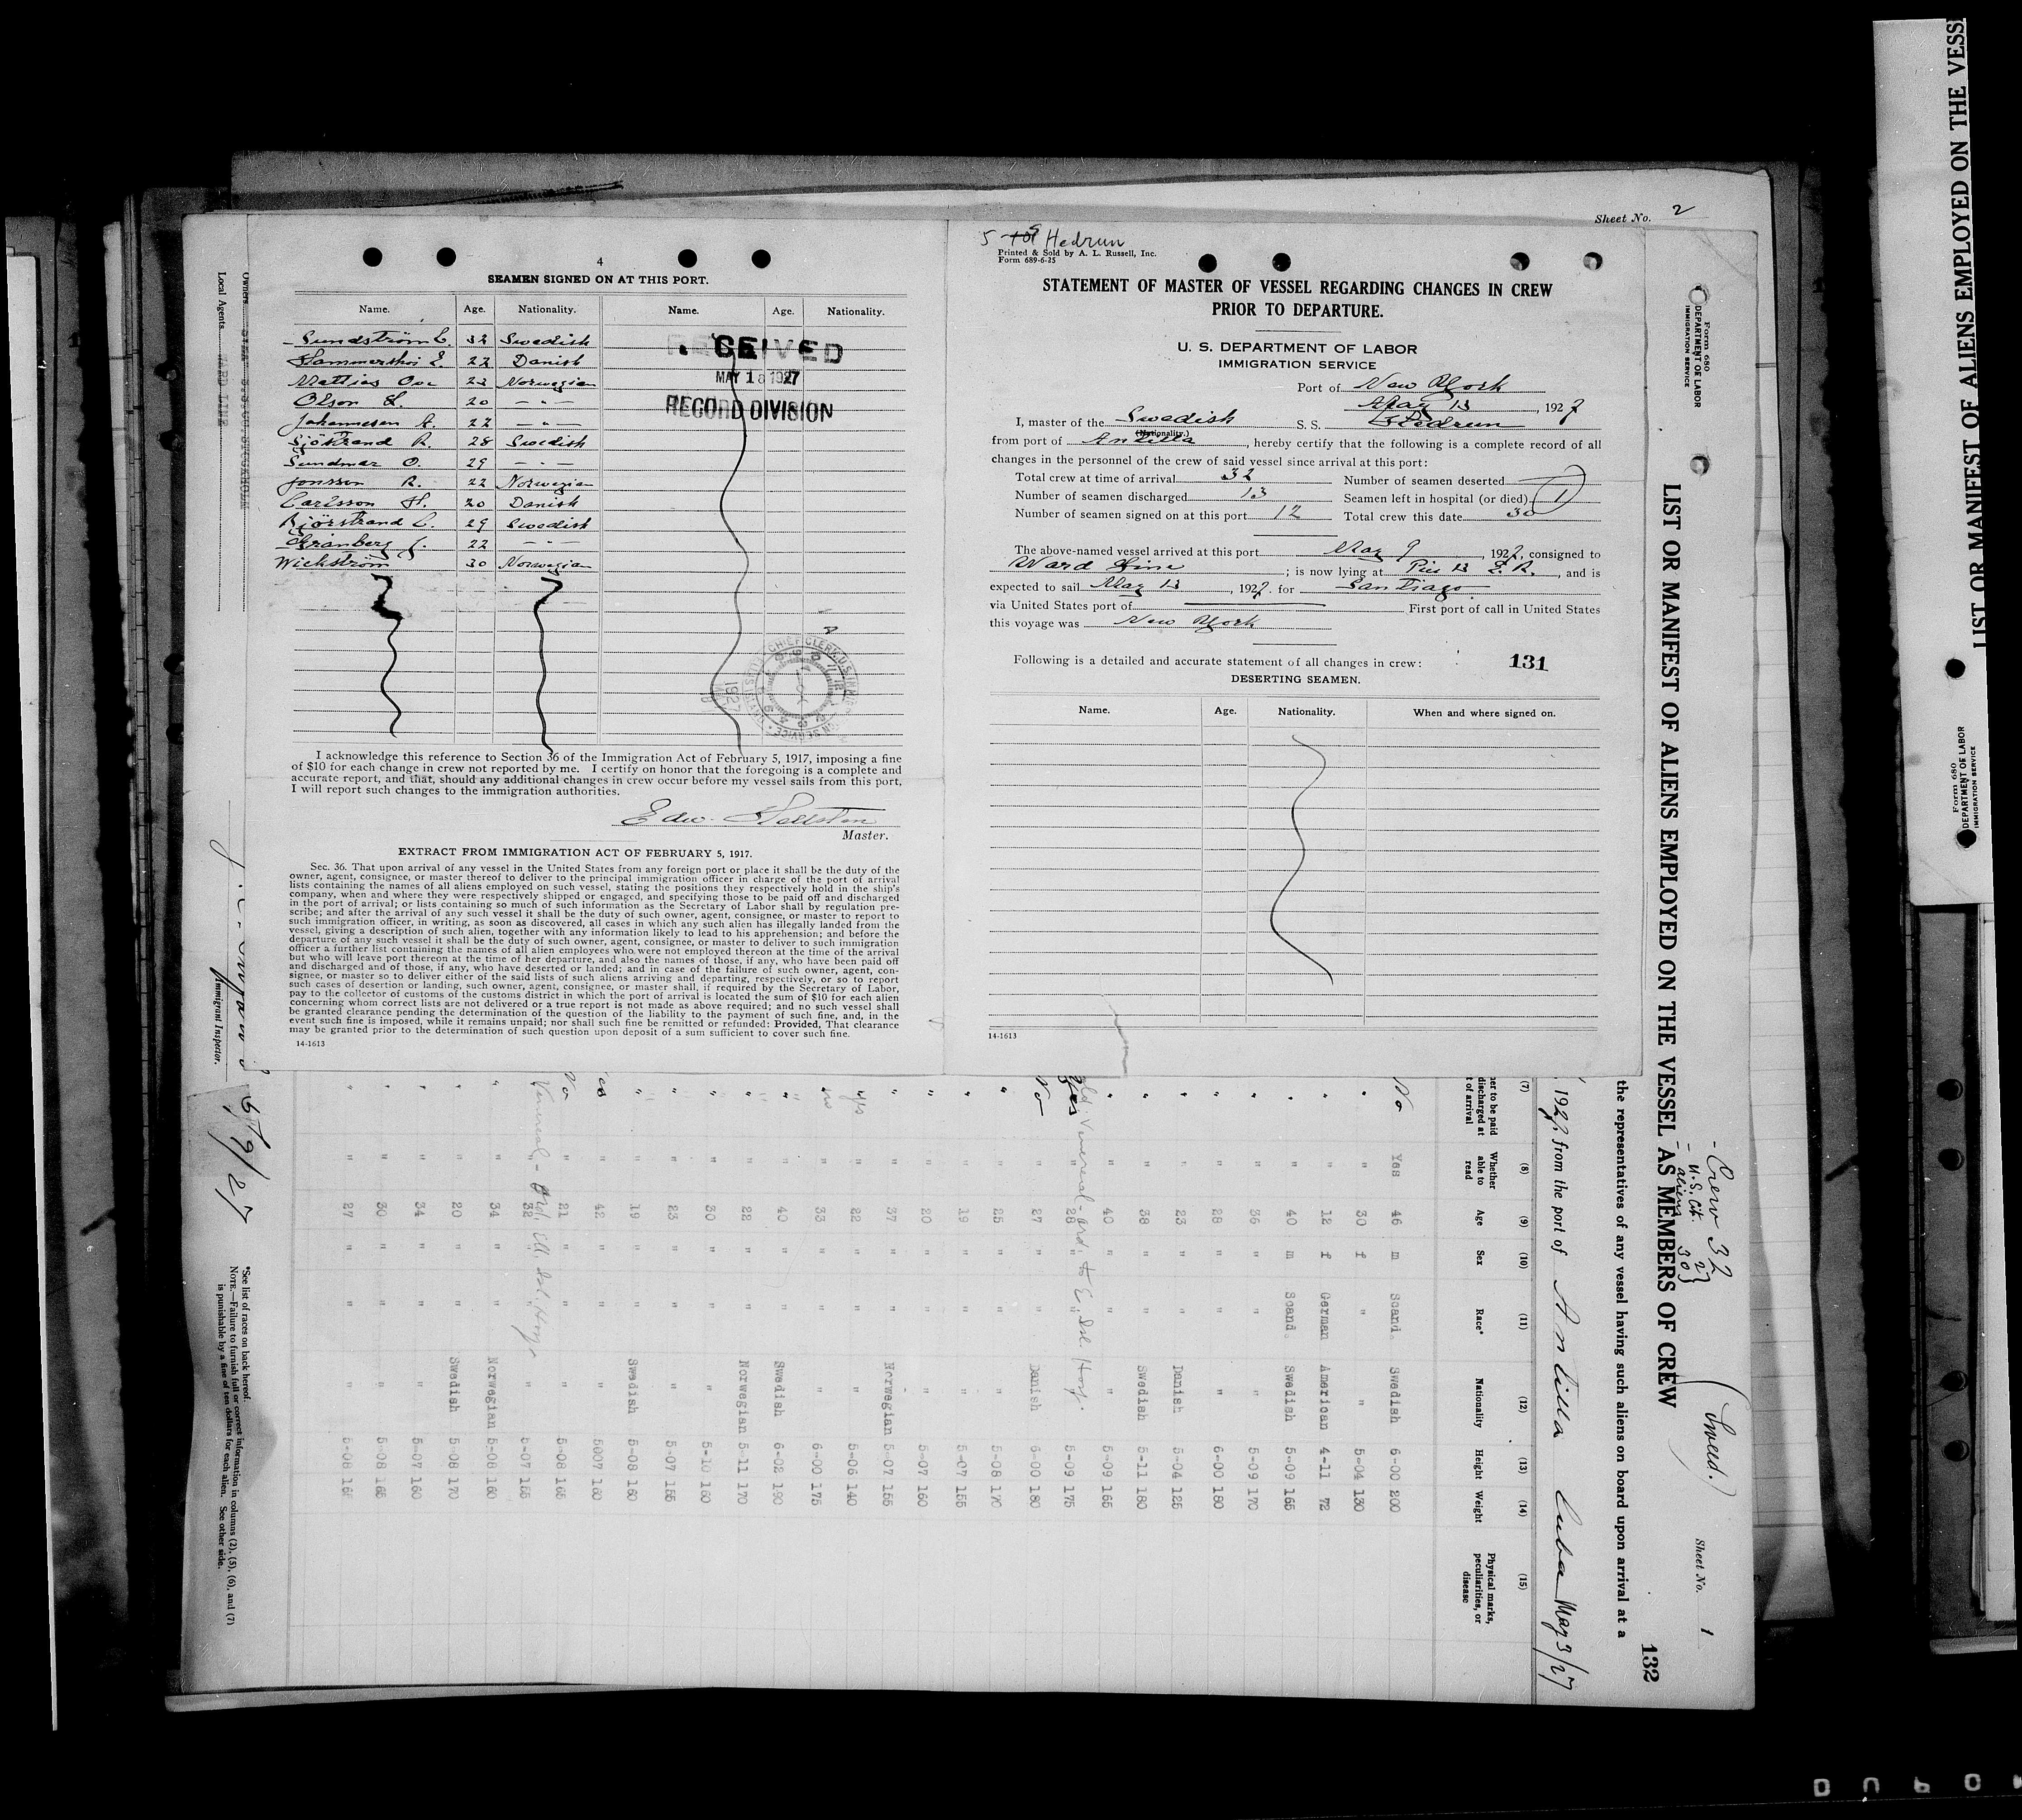 Sheet No. 2
4
SEAMEN SIGNED ON AT THIS PORT.
Name. Age. Nationality. Name. Age. Nationality.
Sundström C. 32 Swedish
Hammershoi E. 22 Danish
Mattias Ove 23 Norwegian
Olson H. 20 — " —
Johannesen A. 22 — " —
Sjöstrand R. 28 Swedish
Sundmar O. 29 — " —
Jonsson R. 22 Norwegian
Carlsson H. 20 Danish
Björstrand C. 29 Swedish
Granberg J. 22 — " —
Wickström 30 Norwegian
RECEIVED
MAY 18 1927
RECORD DIVISION
I acknowledge this reference to Section 36 of the Immigration Act of February 5, 1917, imposing a fine
of $10 for each change in crew not reported by me. I certify on honor that the foregoing is a complete and
accurate report, and that, should any additional changes in crew occur before my vessel sails from this port,
I will report such changes to the immigration authorities.
Edw.
Master.
EXTRACT FROM IMMIGRATION ACT OF FEBRUARY 5, 1917.
Sec. 36. That upon arrival of any vessel in the United States from any foreign port or place it shall be the duty of the
owner, agent, consignee, or master thereof to deliver to the principal immigration officer in charge of the port of arrival
lists containing the names of all aliens employed on such vessel, stating the positions they respectively hold in the ship's
company, when and where they were respectively shipped or engaged, and specifying those to be paid off and discharged
in the port of arrival; or lists containing so much of such information as the Secretary of Labor shall by regulation pre-
scribe; and after the arrival of any such vessel it shall be the duty of such owner, agent, consignee, or master to report to
such immigration officer, in writing, as soon as discovered, all cases in which any such alien has illegally landed from the
vessel, giving a description of such alien, together with any information likely to lead to his apprehension; and before the
departure of any such vessel it shall be the duty of such owner, agent, consignee, or master to deliver to such immigration
officer a further list containing the names of all alien employees who were not employed thereon at the time of the arrival
but who will leave port thereon at the time of her departure, and also the names of those, if any, who have been paid off
and discharged and of those, if any, who have deserted or landed; and in case of the failure of such owner, agent, con-
signee, or master so to deliver either of the said lists of such aliens arriving and departing, respectively, or so to report
such cases of desertion or landing, such owner, agent, consignee, or master shall, if required by the Secretary of Labor,
pay to the collector of customs of the customs district in which the port of arrival is located the sum of $10 for each alien
concerning whom correct lists are not delivered or a true report is not made as above required; and no such vessel shall
be granted clearance pending the determination of the question of the liability to the payment of such fine, and, in the
event such fine is imposed, while it remains unpaid; nor shall such fine be remitted or refunded: Provided, That clearance
may be granted prior to the determination of such question upon deposit of a sum sufficient to cover such fine.
14-1613
5 Hedrun
Printed & Sold by A. L. Russell, Inc.
Form 689-6-25
STATEMENT OF MASTER OF VESSEL REGARDING CHANGES IN CREW
PRIOR TO DEPARTURE.
U. S. DEPARTMENT OF LABOR
IMMIGRATION SERVICE
Port of New York
May 13, 1927
I, master of the Swedish S. S. Hedrun
(Nationality.)
from port of Antilla, hereby certify that the following is a complete record of all
changes in the personnel of the crew of said vessel since arrival at this port:
Total crew at time of arrival 32 Number of seamen deserted
Number of seamen discharged 13 Seamen left in hospital (or died) 1
Number of seamen signed on at this port 12 Total crew this date 30
The above-named vessel arrived at this port May 9, 1927, consigned to
Ward Line; is now lying at Pier 13 E. R., and is
expected to sail May 13, 1927. for Santiago
via United States port of First port of call in United States
this voyage was New York
Following is a detailed and accurate statement of all changes in crew: 131
DESERTING SEAMEN.
Name. Age. Nationality. When and where signed on.
14-1613
Form 680
DEPARTMENT OF LABOR
IMMIGRATION SERVICE
LIST OR MANIFEST OF ALIENS EMPLOYED ON THE VESSEL AS MEMBERS OF CREW
Sheet No. 1
132
(Swed.)
- Crew 32
- U.S. Cit. 2
aliens 30
the representatives of any vessel having such aliens on board upon arrival at a
, 1927, from the port of Antilla Cuba May 3/27
(7) (8) (9) (10) (11) (12) (13) (14) (15)
her to be paid discharged at t of arrival
Whether able to read
Age
Sex
Race*
Nationality
Height
Weight
Physical marks, peculiarities, or disease
No Yes 46 m Scand. Swedish 6-00 200
" " 30 f " " 5-04 130
" " 12 f German American 4-11 72
" " 40 m Scand. Swedish 5-09 165
" " 36 " " " 5-09 170
" " 28 " " " 6-00 180
" " 23 " " Danish 5-04 125
" " 38 " " Swedish 5-11 180
" " 40 " " " 5-09 165
Yes " 28 " " " 5-09 175
Venereal - ord. to E. Isl. Hosp.
No " 27 " " Danish 6-00 180
" " 25 " " " 5-08 170
" " 19 " " " 5-07 155
" " 20 " " " 5-07 160
" " 37 " " Norwegian 5-07 155
yes " 22 " " " 5-06 140
no " 33 " " " 6-00 175
" " 40 " " Swedish 6-02 190
" " 22 " " Norwegian 5-11 170
" " 30 " " " 5-10 160
" " 23 " " " 5-07 155
" " 19 " " Swedish 5-08 160
Yes " 42 " " " 5007 160
No " 21 " " " 5-08 165
" 32 " " " 5-07 155
Venereal - Ord. Ell. Isl. Hosp.
" " 34 " " Norwegian 5-08 160
" " 20 " " Swedish 5-08 170
" " 34 " " " 5-07 160
" " 30 " " " 5-08 165
" " 27 " " " 5-08 165
Owners
Local Agents WARD LINE
Immigrant Inspector.
5/9/27
*See list of races on back hereof.
NOTE.—Failure to furnish full or correct information in columns (2), (5), (6), and (7)
is punishable by a fine of ten dollars for each alien. See other side.
LIST OR MANIFEST OF ALIENS EMPLOYED ON THE VESS
Form 680
DEPARTMENT OF LABOR
IMMIGRATION SERVICE